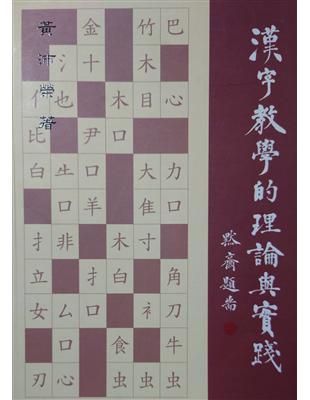 漢字教學的理論與實踐
黙齋題耑
黃沛榮著
金 竹 巴
氵 十 木
亻 也 木 目 心
比 尹 口
白 生 口 大 力
口 羊 隹 口
扌 非 木 寸
立 口 扌 白 角
女 厶 口 衤 刀
口 食 牛
刃 心 虫 虫